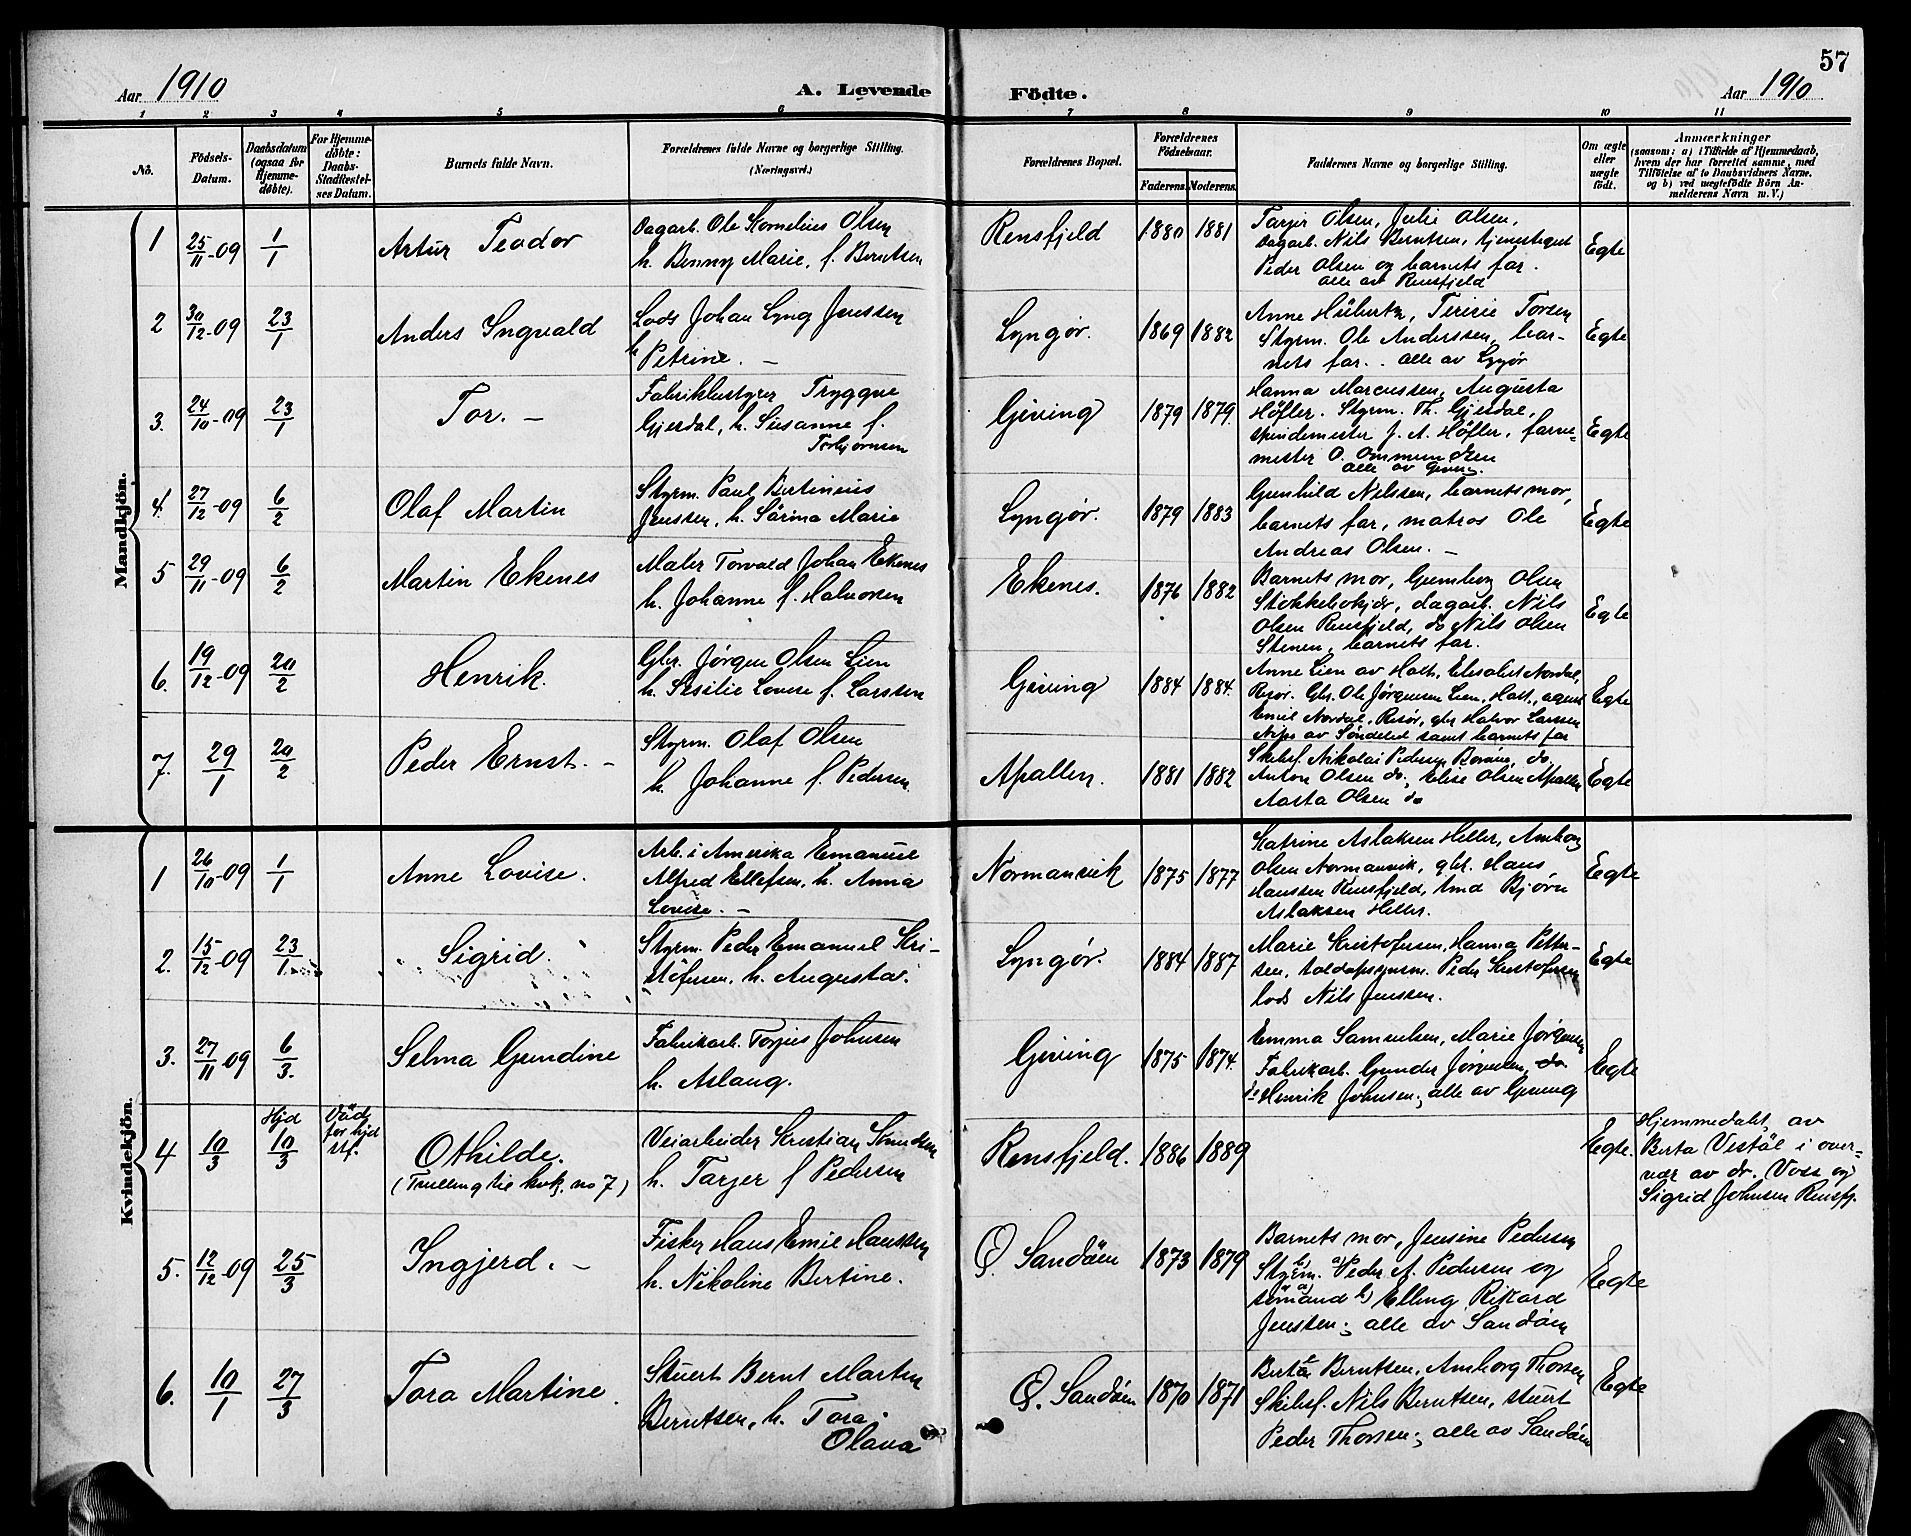 57
Aar 1910
A. Levende Födte.
Aar 1910
1 2 3 4 5 6 7 8 9 10 11
No.
Födsels-Datum.
Daabsdatum (ogsaa for Hjemme-döbte).
For Hjemme-döbte: Daabs-Stadfæstelses Datum.
Barnets fulde Navn.
Forældrenes fulde Navne og borgerlige Stilling. (Næringsvei.)
Forældrenes Bopæl.
Forældrenes Födselsaar.
Faderens. Moderens.
Faddernes Navne og borgerlige Stilling.
Om ægte eller uægte födt.
Anmærkninger
(saasom: a) i Tilfælde af Hjemmedaab,
hvem der har forrettet samme, med
Tilföielse af to Daabsvidners Navne.
og b) ved uægtefödte Börn An-
melderens Navn m. V.)
Mandkjön.
1 25/11-09 1/1 Artur Teodor
Dagarb. Ole Kornelius Olsen
h. Benny Marie, f. Berntsen
Rensfjeld 1880 1881
Tarjer Olsen, Julie Olsen,
Dagarb. Nils Berntsen, tjenestegut
Peder Olsen og barnets far.
alle av Rensfjeld
Egte
2 30/12-09 23/1 Anders Ingvald
Lods Johan Lyng Jenssen
h Petrine. –
Lyngør. 1869 1882
Anne Hübertz, Teresie Torsen
Styrm. Ole Anderssen, bar-
nets far. . alle av Lyngør
Egte
3. 24/10-09 23/1 Tor. –
Fabrikbestyrer Tryggve
Gjerdal, h. Susanne f.
Torbjørnsen
Giving 1879 1879.
Hanna Marcussen, Augusta
Høfler. Styrm. Th. Gjerdal,
spindemester J. A. Høfler, farve-
mester O. Ommundsen
alle av Giving.
Egte
4. 27/12-09 6/2 Olaf Martin
Styrm. Paul Bertinius
Jenssen, h. Sårina Marie
Lyngør. 1879 1883
Gunhild Nilssen, barnets mor,
barnets far, matros Ole
Andreas Olsen. –
Egte
5 29/11-09 6/2 Martin Ekenes
Maler Torvald Johan Ekenes
h. Johanne f. Halvorsen
Ekenes. 1876 1882
Barnets mor, Gunborg Olsen
dagarb. Nils
Olsen Rensfjeld, do Nils Olsen
Stenen, barnets far.
Egte
6. 19/12-09 20/2 Henrik.
Gbr. Jørgen Olsen Lien
h. Sesilie Lovise f. Larssen
Giving 1884 1884.
Anne Lien av Holt, Elisabet Nordal,
Risør. Gbr. Ole Jørgensen Lien, Holt, agent
Emil Nordal, Risør, gbr Halvor Larssen
av Søndeled samt barnets far
Egte
7. 29/1 20/2 Peder Ernst. –
Styrm. Olaf Olsen
h. Johanne f. Pedersen
Apallen. 1881 1882
Skibsf. Nikolai Pedersen Borøen, do.
Anton Olsen do, Elise Olsen Apallen
Aasta Olsen do
Egte
Kvindekjön.
1 26/10-09 1/1 Anne Lovise.
Arb. i Amerika Emanuel
Alfred Ellefsen, h. Anna
Lovise. –
Normansvik 1875 1877
Katrine Aslaksen Heller, Amborg
Olsen Normansvik, gbr. Hans
Hanssen Rensfjeld, tmd Bjørn
Aslaksen Heller.
Egte
2. 15/12-09 23/1 Sigrid.
Styrm. Peder Emanuel Kri-
stofersen, h. Augusta.
Lyngør. 1884 1887
Marie Kristofersen, Hanna Petter-
sen, toldopsynsm. Peder Kristofersen
lods Nils Jenssen.
Egte
3. 27/11-09 6/3. Selma Gundine
Fabrikarb. Torjus Johnsen
h. Aslaug.
Giving 1875 1874.
Emma Samuelsen, Marie Jørgensen
Fabrikarb. Gunder Jørgensen, do
do Henrik Johnsen; alle av Giving
Egte
4 10/3 Hjd 10/3 for hjd
Othilde.
(Tvilling til kvk. no 7)
Veiarbeider Kristian
h. Tarjer f Pedersen
Rensfjeld. 1886 1889
Egte.
Hjemmedøbt av
Berta Vestøl i over-
vær av dr. Voss og
Sigrid Johnsen Rensfj.
5. 12/12-09 25/3 Ingjerd. –
Fisker Hans Emil Hanssen
h. Nikoline Bertine.
Ø. Sandöen 1873 1879
Barnets mor, Jensine Pedersen
Styrm. b) a) Peder A. Pedersen og
sömand a) b) Elling Rikard
Jenssen; alle av Sandöen
Egte
6. 10/1 27/3 Tora Martine.
Stuert Bernt Martin
Berntsen, h. Tora
Olava
Ø. Sandöen 1870 1871
Berte Berntsen, Amborg Thorsen
Skibsf. Nils Berntsen, stuert
Peder Thorsen; alle av Sandöen
Egte